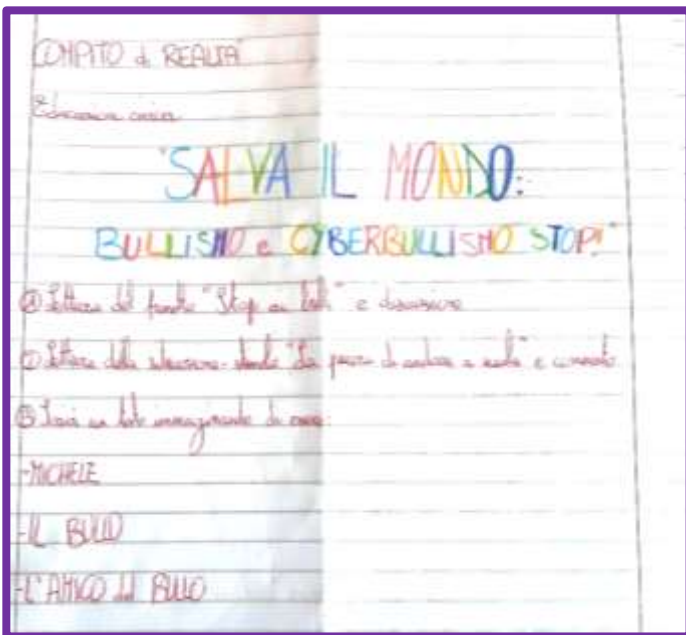 COMPITO di REALTÀ
Educazione civica
"SALVA IL MONDO:
BULLISMO e CYBERBULLISMO STOP!"
Lettura del "Stop ai bulli" e discussione
Lettura della "La paura di andare a scuola" e commento
Scrivi un testo immaginando di essere:
-MICHELE
-IL BULLO
-L'AMICO del BULLO